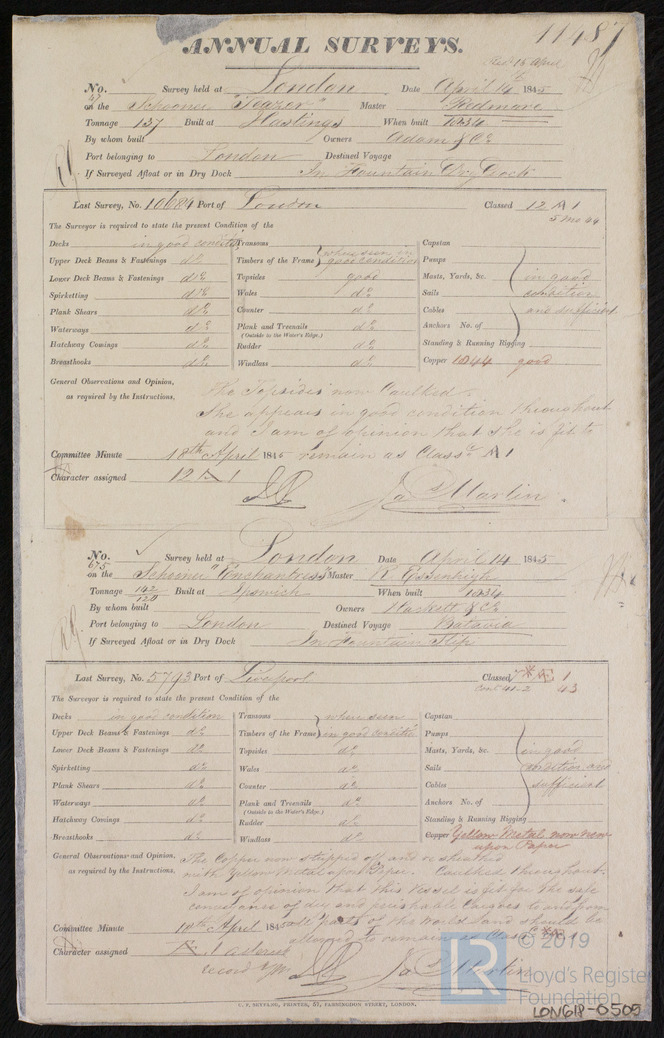 11487
ANNUAL SURVEYS.
Recd 16 April
No. 47 Survey held at London Date April 14 1845
on the Schooner "Teazer" Master Redmore
Tonnage 137 Built at Hastings When built 1834
By whom built Owners Adam & Co
Port belonging to London Destined Voyage
If Surveyed Afloat or in Dry Dock In Fountain Dry Dock
Last Survey, No. 10684 Port of London Classed 12 A 1
5 mo 44
The Surveyor is required to state the present Condition of the
Decks in good condition
Upper Deck Beams & Fastenings do
Lower Deck Beams & Fastenings do
Spirketting do
Plank Shears do
Waterways do
Hatchway Comings do
Breasthooks do
Transoms
Timbers of the Frame } where seen in good condition
Topsides good
Wales do
Counter do
Plank and Treenails do
(Outside to the Water's Edge.)
Rudder do
Windlass do
Capstan
Pumps
Masts, Yards, &c. in good
Sails condition
Cables and sufficient
Anchors No. of
Standing & Running Rigging
Copper 1844 good
General Observations and Opinion, The Topsides now Caulked.
as required by the Instructions, She appears in good condition throughout
and I am of opinion that she is fit to
Committee Minute 18th April 1845 remain as Classed A 1
Character assigned 12 A 1
Jas Martin
No. 675 Survey held at London Date April 14 1845
on the Schooner "Enchantress" Master R.
Tonnage 142/120 Built at Ipswich When built 1834
By whom built Owners Hackett & Co
Port belonging to London Destined Voyage Batavia
If Surveyed Afloat or in Dry Dock In Fountain Slip
Last Survey, No. 5793 Port of Liverpool Classed 1
43
The Surveyor is required to state the present Condition of the
Decks in good condition
Upper Deck Beams & Fastenings do
Lower Deck Beams & Fastenings do
Spirketting do
Plank Shears do
Waterways do
Hatchway Comings do
Breasthooks do
Transoms } where seen
Timbers of the Frame } in good condition
Topsides do
Wales do
Counter do
Plank and Treenails do
(Outside to the Water's Edge.)
Rudder do
Windlass do
Capstan
Pumps
Masts, Yards, &c. in good
Sails condition and
Cables sufficient
Anchors No. of
Standing & Running Rigging
Copper Yellow Metal now new
upon Paper
General Observations and Opinion, The Copper now stripped off and resheathed
as required by the Instructions, with Yellow Metal upon Paper. Caulked throughout.
I am of opinion that this Vessel is fit for the safe
conveyance of dry and perishable Cargoes to and from
Committee Minute 18th April 1845 all parts of the World and should be
allowed to remain as Classed
Character assigned
record YM
Jas Martin
C. F. SEYFANG, PRINTER, 57, FARRINGDON STREET, LONDON.
LR © 2019
Lloyd's Register
Foundation
LON618-0505